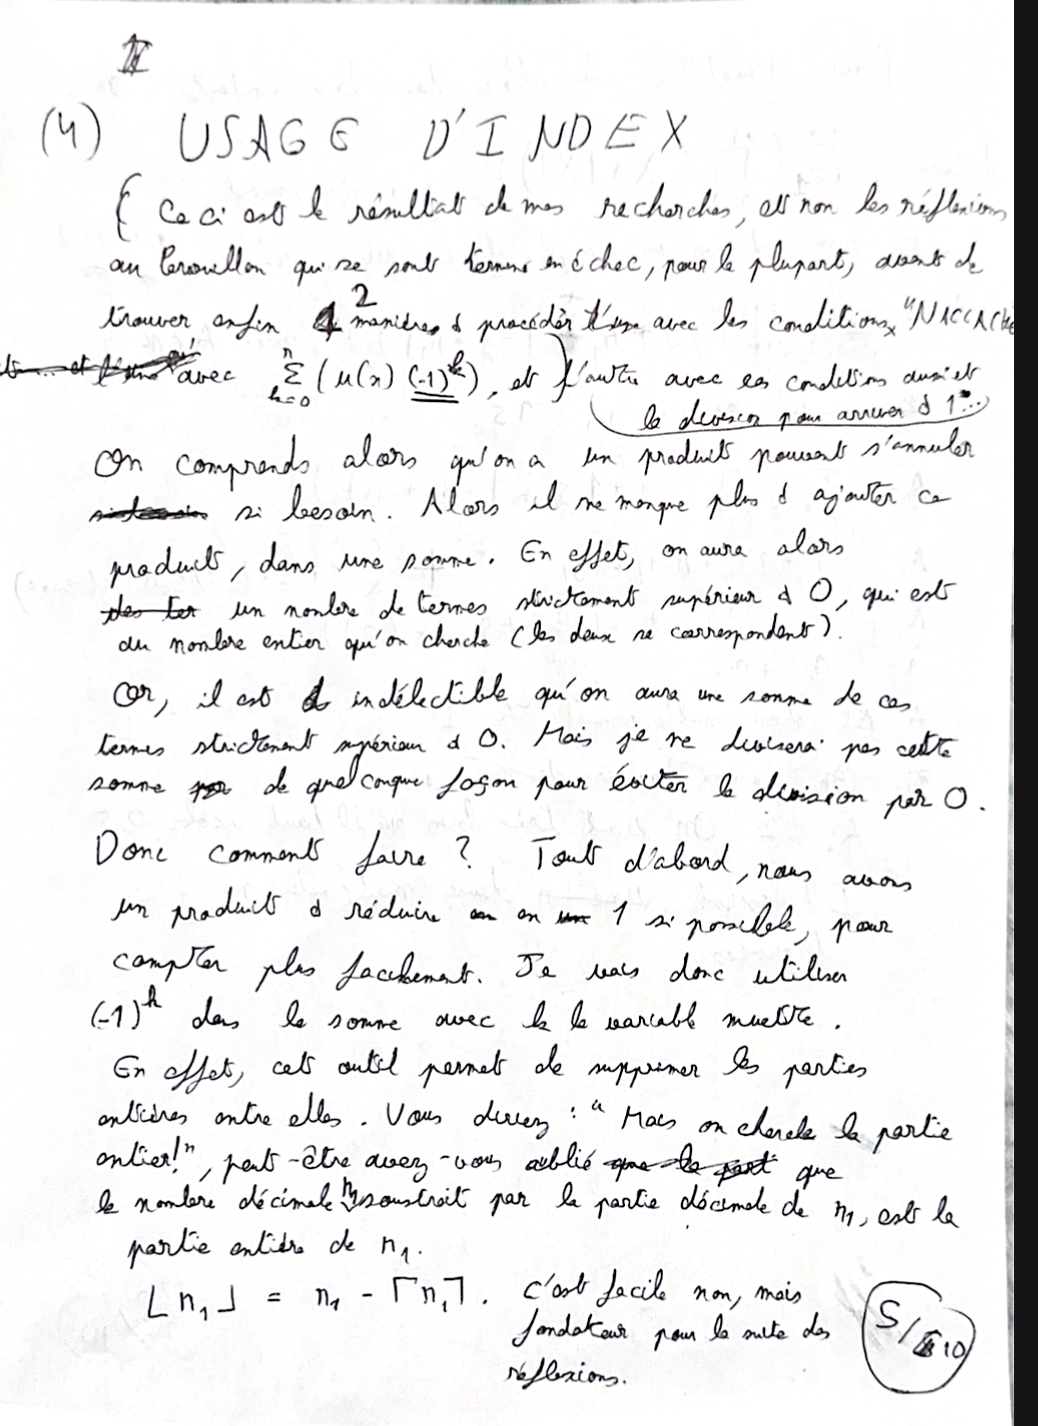 II
(4) USAGE D'INDEX
( Ceci est le résultat de mes recherches, et non les réflexions
au brouillon qui se sont termine en échec, pour la plupart, avant de
trouver enfin 2 manières à procéder l'une avec les conditions "NACCACHE
avec Σ (μ(x) (-1)^k), et ) l'autre avec ces conditions aussi et
n
k=0
la division pour arriver à 1...
On comprends alors qu'on a un produit pouvant s'annuler
si besoin. Alors il ne manque plus à ajouter ce
produit, dans une somme. En effet, on aura alors
un nombre de termes strictement supérieur à 0, qui est
du nombre entier qu'on cherche (les deux se correspondent).
Or, il est indélectible qu'on aura une somme de ces
termes strictement supérieur à 0. Mais je ne diviserai pas cette
somme de quelconque façon pour éviter la division par 0.
Donc comment faire ? Tout d'abord, nous avons
un produit à réduire en 1 si possible, pour
compter plus facilement. Je vais donc utiliser
(-1)^k dans la somme avec k la variable muette.
En effet, cet outil permet de supprimer les parties
entières entre elles. Vous direz : "Mais on cherche la partie
entier!", peut-être avez-vous oublié que
le nombre décimale n₁ soustrait par la partie décimale de n₁, est la
partie entière de n₁.
⌊n₁⌋ = n₁ - ⌈n₁⌉. C'est facile non, mais
fondateur pour la suite des
réflexions.
5/10